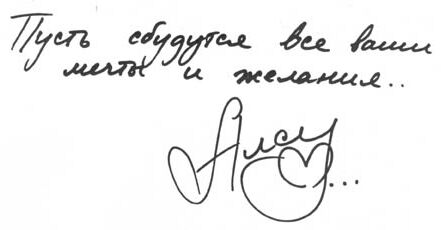 Пусть сбудутся все ваши
мечты и желания..
Алсу...